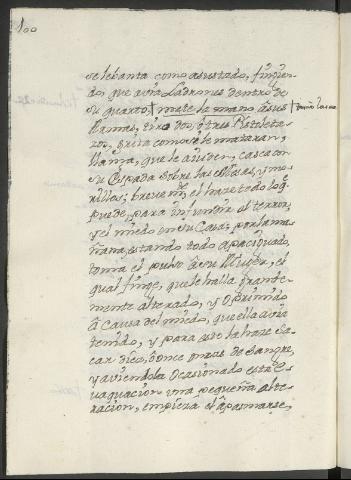 100
se lebanta como asustado, fingien-
do, que avia Ladrones dentro de
su quarto, † mete la mano à sus
llamas, tira dos, ò tres Pistoleta-
zos, grita como si le mataran,
llama, que le aiuden, casca con
su Espada sobre las sillas, y mo-
rillos; breve mte, el haze todo loq.
puede, para infundir el terror,
y el miedo en su Casa; por la ma-
ñana, estando todo apaciguado,
toma el pulso à su Muger, el
qual finge, que le halla grande-
mente alterado, y oprimido
à causa del miedo, que ella avia
tenido, y para esto la haze sa-
car diez, ò once onzas de Sangre,
y aviendola ocasionado esta E-
vaquacion una pequeña alte-
racion, empieza el à pasmarse,